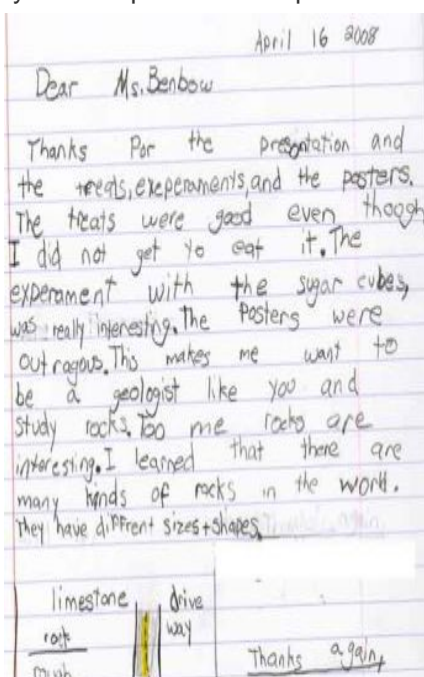 April 16 2008
Dear Ms. Benbow
Thanks For the presentation and
the treats, exeperaments, and the posters.
The treats were good even though
I did not get to eat it. The
experament with the sugar cubes,
was really interesting. The Posters were
outragous. This makes me want to
be a geologist like you and
study rocks. Too me rocks are
interesting. I learned that there are
many kinds of rocks in the world.
They have diffrent sizes + shapes.
limestone drive
rock way
rough
Thanks again,